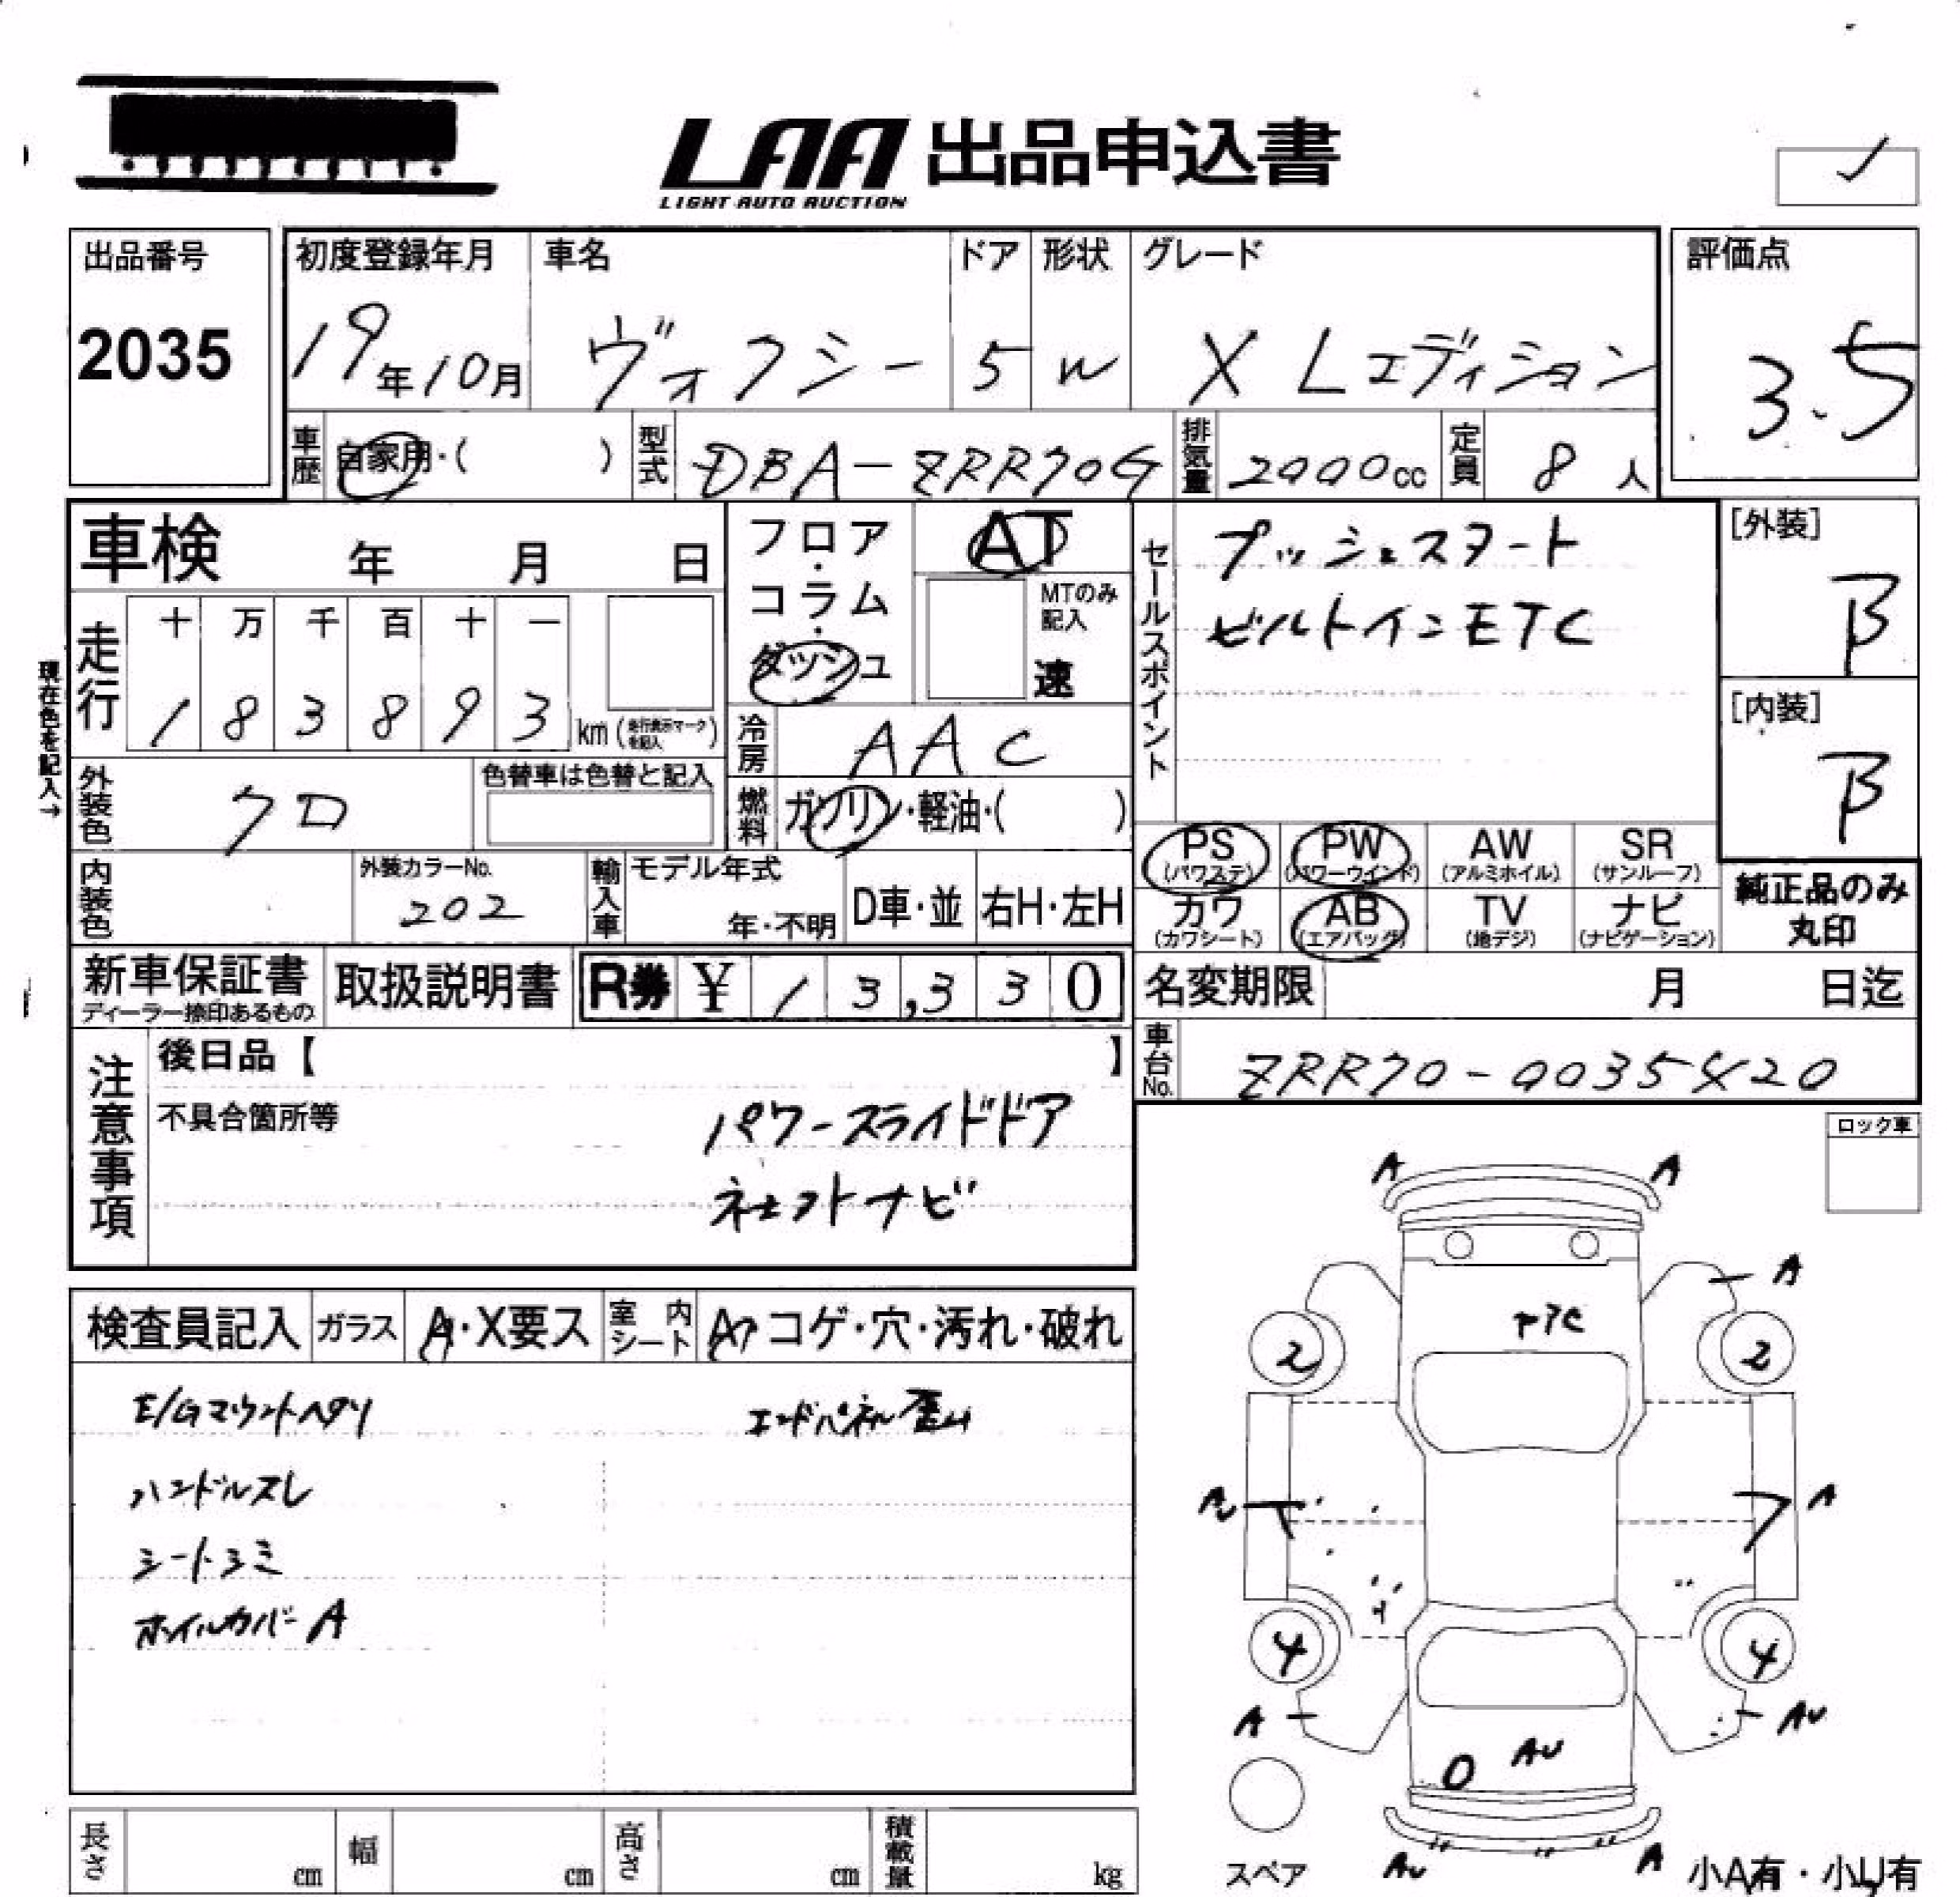 LAA 出品申込書
LIGHT AUTO AUCTION
出品番号
2035
初度登録年月
19年10月
車名
ヴォクシー
ドア
5
形状
W
グレード
X Lエディション
評価点
3.5
車歴
自家用・( )
型式
DBA-ZRR70G
排気量
2000cc
定員
8人
車検 年 月 日
走行
十 万 千 百 十 一
1 8 3 8 9 3 km(走行表示マークを記入)
現在色を記入→
フロア・コラム・ダッシュ
AT
MTのみ記入
速
冷房
AAC
燃料
ガソリン・軽油・( )
セールスポイント
プッシュスタート
ビルトインETC
[外装]
B
[内装]
B
外装色
クロ
色替車は色替と記入
内装色
外装カラーNo.
202
輸入車
モデル年式
年・不明
D車・並
右H・左H
PS (パワステ)
PW (パワーウインド)
AW (アルミホイル)
SR (サンルーフ)
カワ (カワシート)
AB (エアバッグ)
TV (地デジ)
ナビ (ナビゲーション)
純正品のみ
丸印
新車保証書
ディーラー捺印あるもの
取扱説明書
R券 ¥ 13,330
名変期限 月 日迄
車台No.
ZRR70-0035420
注意事項
後日品【 】
不具合箇所等
パワースライドドア
社外ナビ
ロック車
検査員記入
ガラス
A・X要ス
室内シート
コゲ・穴・汚れ・破れ
E/Gマウントヘタリ
エンドパネル歪み
ハンドルスレ
シートシミ
ホイルカバーA
A A
A
2 2
A
4 4
A AU
AU
AU A
スペア
小A有・小U有
長さ cm
幅 cm
高さ cm
積載量 kg